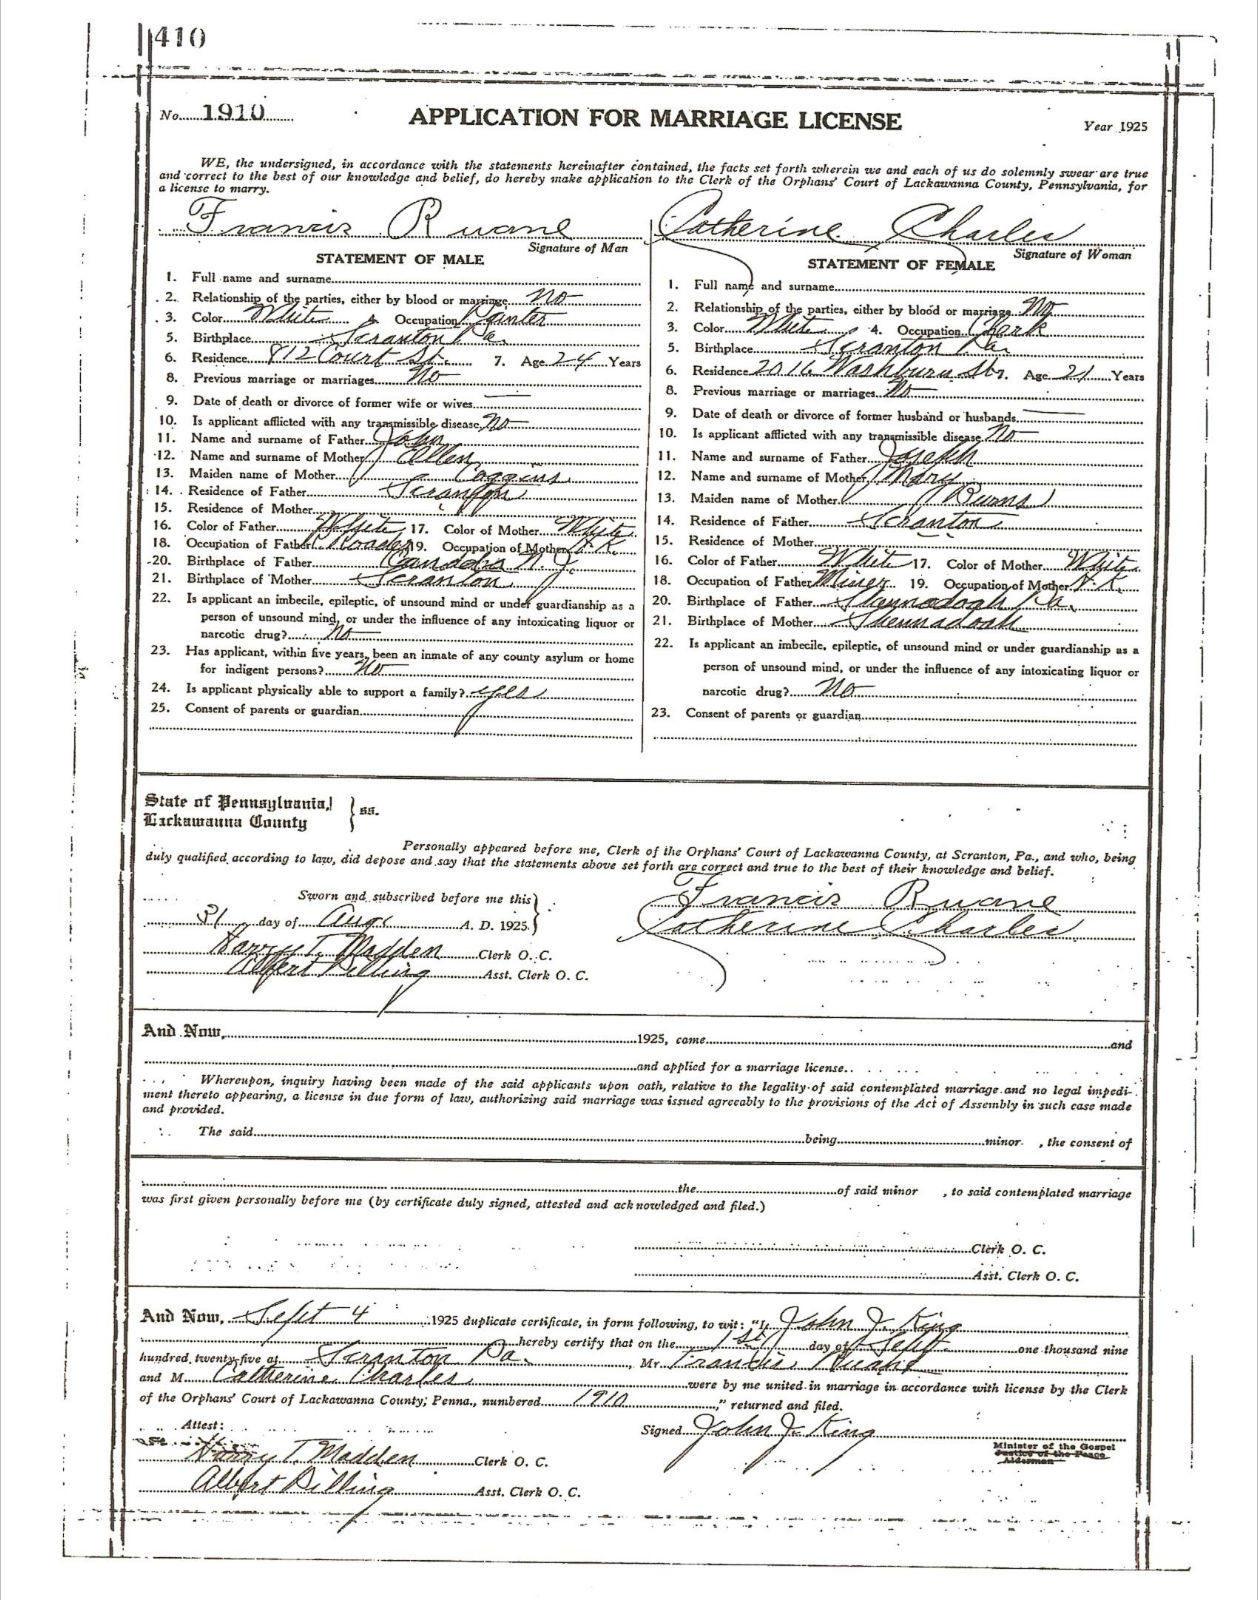 410
No. 1910 APPLICATION FOR MARRIAGE LICENSE Year 1925
WE, the undersigned, in accordance with the statements hereinafter contained, the facts set forth wherein we and each of us do solemnly swear are true
and correct to the best of our knowledge and belief, do hereby make application to the Clerk of the Orphans' Court of Lackawanna County, Pennsylvania, for
a license to marry.
Francis Ruane
Signature of Man
STATEMENT OF MALE
1. Full name and surname
2. Relationship of the parties, either by blood or marriage No
3. Color White 4. Occupation Painter
5. Birthplace Scranton Pa.
6. Residence 812 Court St. 7. Age 24 Years
8. Previous marriage or marriages No
9. Date of death or divorce of former wife or wives —
10. Is applicant afflicted with any transmissible disease No
11. Name and surname of Father John
12. Name and surname of Mother Ellen
13. Maiden name of Mother Coggins
14. Residence of Father Scranton
15. Residence of Mother
16. Color of Father White 17. Color of Mother White
18. Occupation of Father 19. Occupation of Mother H.K.
20. Birthplace of Father N. J.
21. Birthplace of Mother Scranton
22. Is applicant an imbecile, epileptic, of unsound mind or under guardianship as a
person of unsound mind, or under the influence of any intoxicating liquor or
narcotic drug? No
23. Has applicant, within five years, been an inmate of any county asylum or home
for indigent persons? No
24. Is applicant physically able to support a family? yes
25. Consent of parents or guardian
Catherine Charles
Signature of Woman
STATEMENT OF FEMALE
1. Full name and surname
2. Relationship of the parties, either by blood or marriage No
3. Color White 4. Occupation Clerk
5. Birthplace Scranton Pa.
6. Residence 2016 Washburn St. 7. Age 21 Years
8. Previous marriage or marriages No
9. Date of death or divorce of former husband or husbands —
10. Is applicant afflicted with any transmissible disease No
11. Name and surname of Father Joseph
12. Name and surname of Mother Mary
13. Maiden name of Mother Burns
14. Residence of Father Scranton
15. Residence of Mother
16. Color of Father White 17. Color of Mother White
18. Occupation of Father Miner 19. Occupation of Mother H.K.
20. Birthplace of Father Shennadoah Pa.
21. Birthplace of Mother Shennadoah
22. Is applicant an imbecile, epileptic, of unsound mind or under guardianship as a
person of unsound mind, or under the influence of any intoxicating liquor or
narcotic drug? No
23. Consent of parents or guardian
State of Pennsylvania,
Lackawanna County } ss.
Personally appeared before me, Clerk of the Orphans' Court of Lackawanna County, at Scranton, Pa., and who, being
duly qualified according to law, did depose and say that the statements above set forth are correct and true to the best of their knowledge and belief.
Sworn and subscribed before me this
31 day of Aug. A. D. 1925.
Harry T. Madden Clerk O. C.
Albert Dilling Asst. Clerk O. C.
Francis Ruane
Catherine Charles
And Now, 1925, came and
and applied for a marriage license.
Whereupon, inquiry having been made of the said applicants upon oath, relative to the legality of said contemplated marriage and no legal impedi-
ment thereto appearing, a license in due form of law, authorizing said marriage was issued agreeably to the provisions of the Act of Assembly in such case made
and provided.
The said being minor , the consent of
the of said minor , to said contemplated marriage
was first given personally before me (by certificate duly signed, attested and acknowledged and filed.)
Clerk O. C.
Asst. Clerk O. C.
And Now, Sept 4 1925 duplicate certificate, in form following, to wit: "I, John J. King
hereby certify that on the 1st day of Sept. one thousand nine
hundred twenty-five at Scranton Pa. , Mr. Francis Ruane
and M Catherine Charles were by me united in marriage in accordance with license by the Clerk
of the Orphans' Court of Lackawanna County, Penna., numbered 1910 ," returned and filed.
Attest: Signed John J. King
Minister of the Gospel
Justice of the Peace
Alderman
Harry T. Madden Clerk O. C.
Albert Dilling Asst. Clerk O. C.